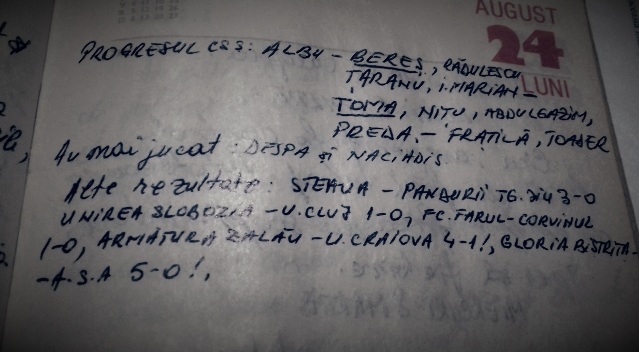 AUGUST
24
LUNI
PROGRESUL CSS: ALBU - BEREȘ, RĂDULESCU
ȚĂRANU, I. MARIAN -
TOMA, NIȚU, ABDULGAZIM,
PREDA - FRATILĂ, TOADER
Au mai jucat: DESPA și NACIADIS
Alte rezultate: STEAUA - PANDURII TG. JIU 3-0
UNIREA SLOBOZIA - U. CLUJ 1-0, FC. FARUL - CORVINUL
1-0, ARMĂTURA ZALĂU - U. CRAIOVA 4-1!, GLORIA BISTRIȚA -
- A.S.A 5-0!,